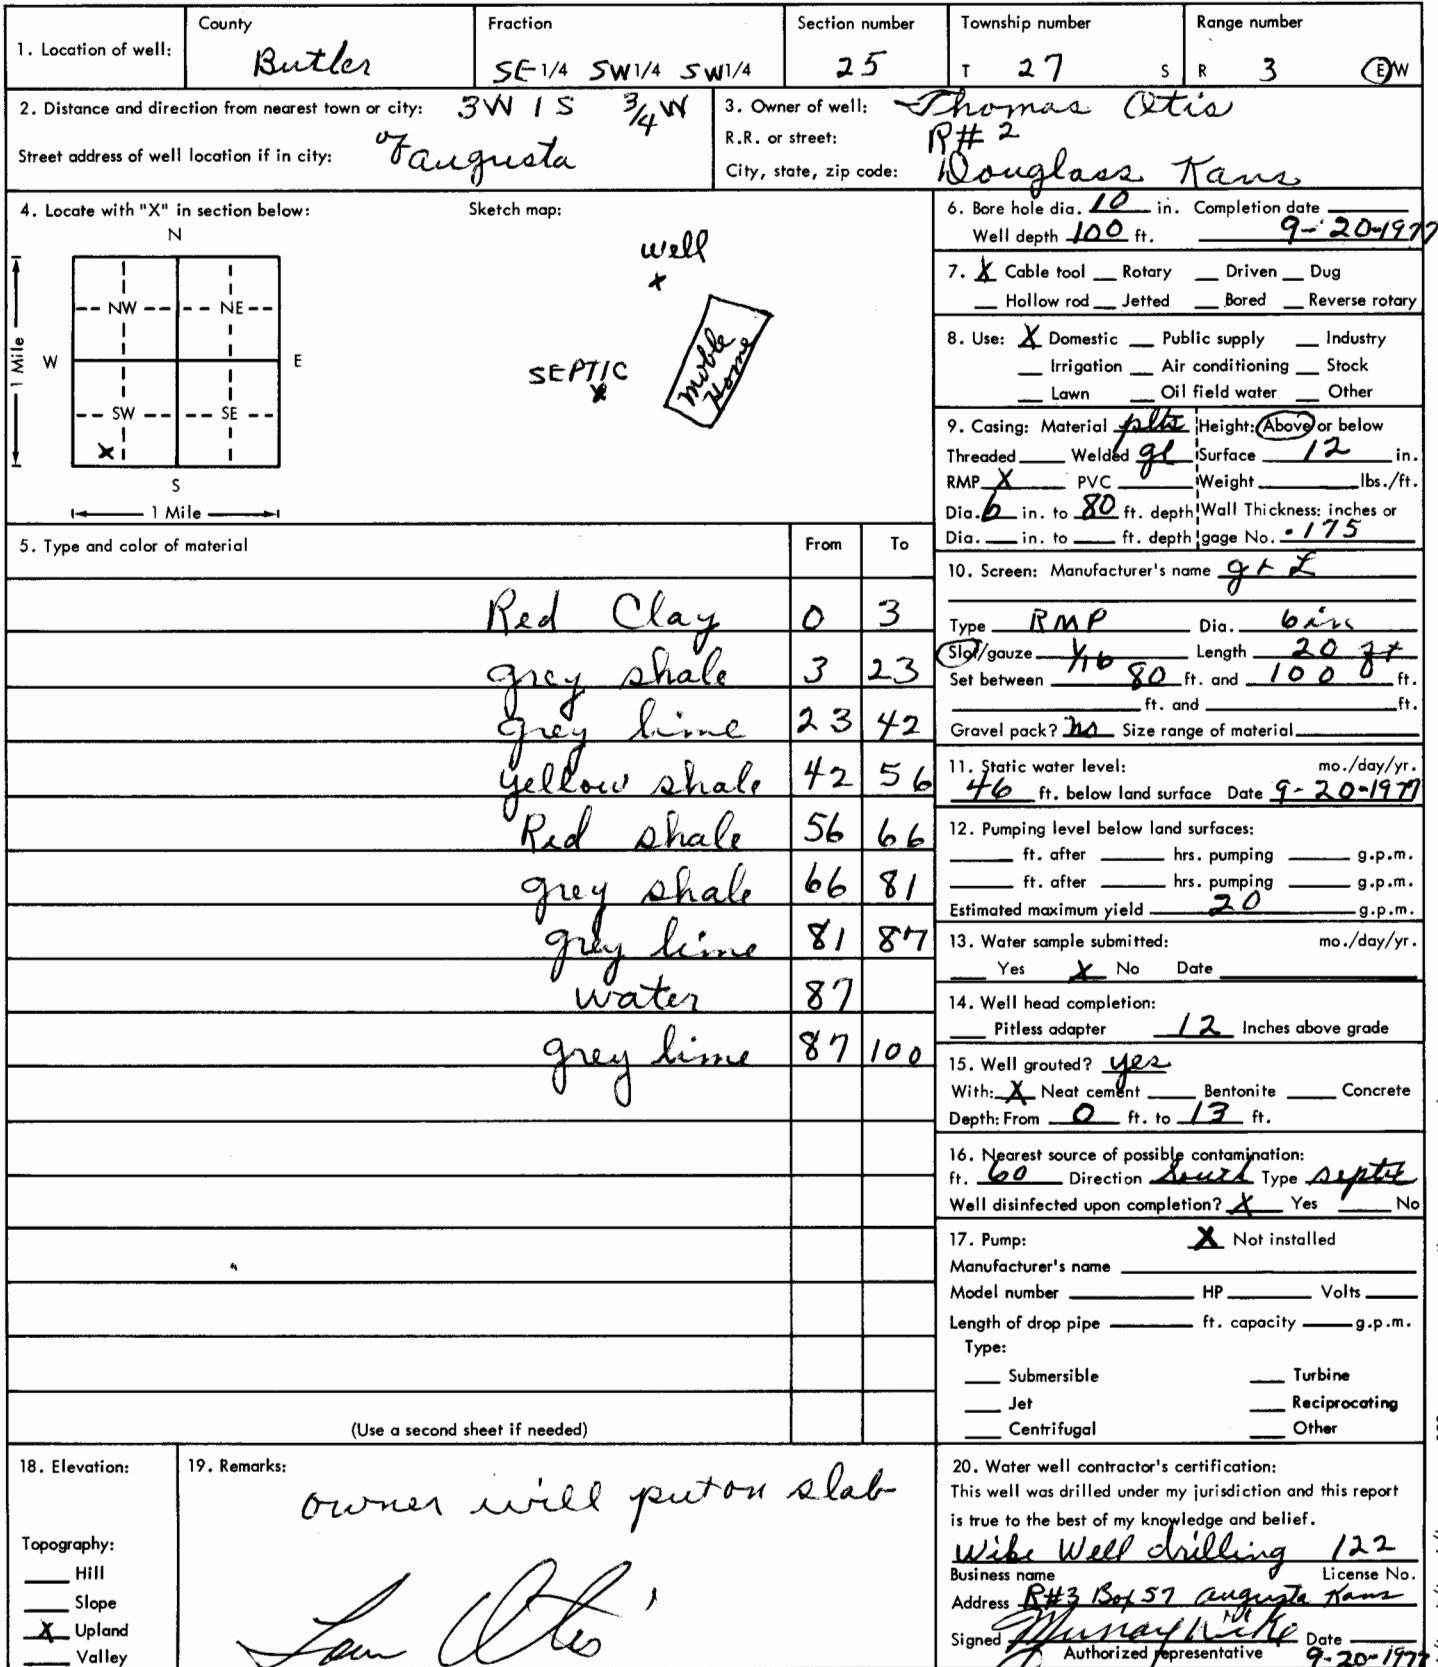 1. Location of well: County Butler Fraction SE 1/4 SW 1/4 SW 1/4 Section number 25 Township number T 27 S Range number R 3 E/W
2. Distance and direction from nearest town or city: 3W 1 S 3/4 W
of augusta
Street address of well location if in city:
3. Owner of well: Thomas Otis
R.R. or street: R# 2
City, state, zip code: Douglass Kans
4. Locate with "X" in section below:
N
NW NE
W E
SW SE
X
S
1 Mile
1 Mile
Sketch map:
well
x
SEPTIC
x
Moble
Home
5. Type and color of material From To
Red Clay 0 3
grey shale 3 23
grey lime 23 42
yellow shale 42 56
Red shale 56 66
grey shale 66 81
grey lime 81 87
water 87
grey lime 87 100
(Use a second sheet if needed)
6. Bore hole dia. 10 in. Completion date
Well depth 100 ft. 9-20-1977
7. X Cable tool Rotary Driven Dug
Hollow rod Jetted Bored Reverse rotary
8. Use: X Domestic Public supply Industry
Irrigation Air conditioning Stock
Lawn Oil field water Other
9. Casing: Material Height: Above or below
Threaded Welded gl Surface 12 in.
RMP X PVC Weight lbs./ft.
Dia. 6 in. to 80 ft. depth Wall Thickness: inches or
Dia. in. to ft. depth gage No. .175
10. Screen: Manufacturer's name
Type RMP Dia. 6 in
Slot/gauze 1/16 Length 20 ft
Set between 80 ft. and 100 ft.
ft. and ft.
Gravel pack? no Size range of material
11. Static water level: mo./day/yr.
46 ft. below land surface Date 9-20-1977
12. Pumping level below land surfaces:
ft. after hrs. pumping g.p.m.
ft. after hrs. pumping g.p.m.
Estimated maximum yield 20 g.p.m.
13. Water sample submitted: mo./day/yr.
Yes X No Date
14. Well head completion:
Pitless adapter 12 Inches above grade
15. Well grouted? yes
With: X Neat cement Bentonite Concrete
Depth: From 0 ft. to 13 ft.
16. Nearest source of possible contamination:
ft. 60 Direction South Type septic
Well disinfected upon completion? X Yes No
17. Pump: X Not installed
Manufacturer's name
Model number HP Volts
Length of drop pipe ft. capacity g.p.m.
Type:
Submersible Turbine
Jet Reciprocating
Centrifugal Other
18. Elevation:
Topography:
Hill
Slope
X Upland
Valley
19. Remarks:
owner will put on slab
Tom Otis
20. Water well contractor's certification:
This well was drilled under my jurisdiction and this report
is true to the best of my knowledge and belief.
Wike Well drilling 122
Business name License No.
Address R#3 Box 57 augusta Kans
Signed Murray Wike Date
Authorized representative 9-20-1977